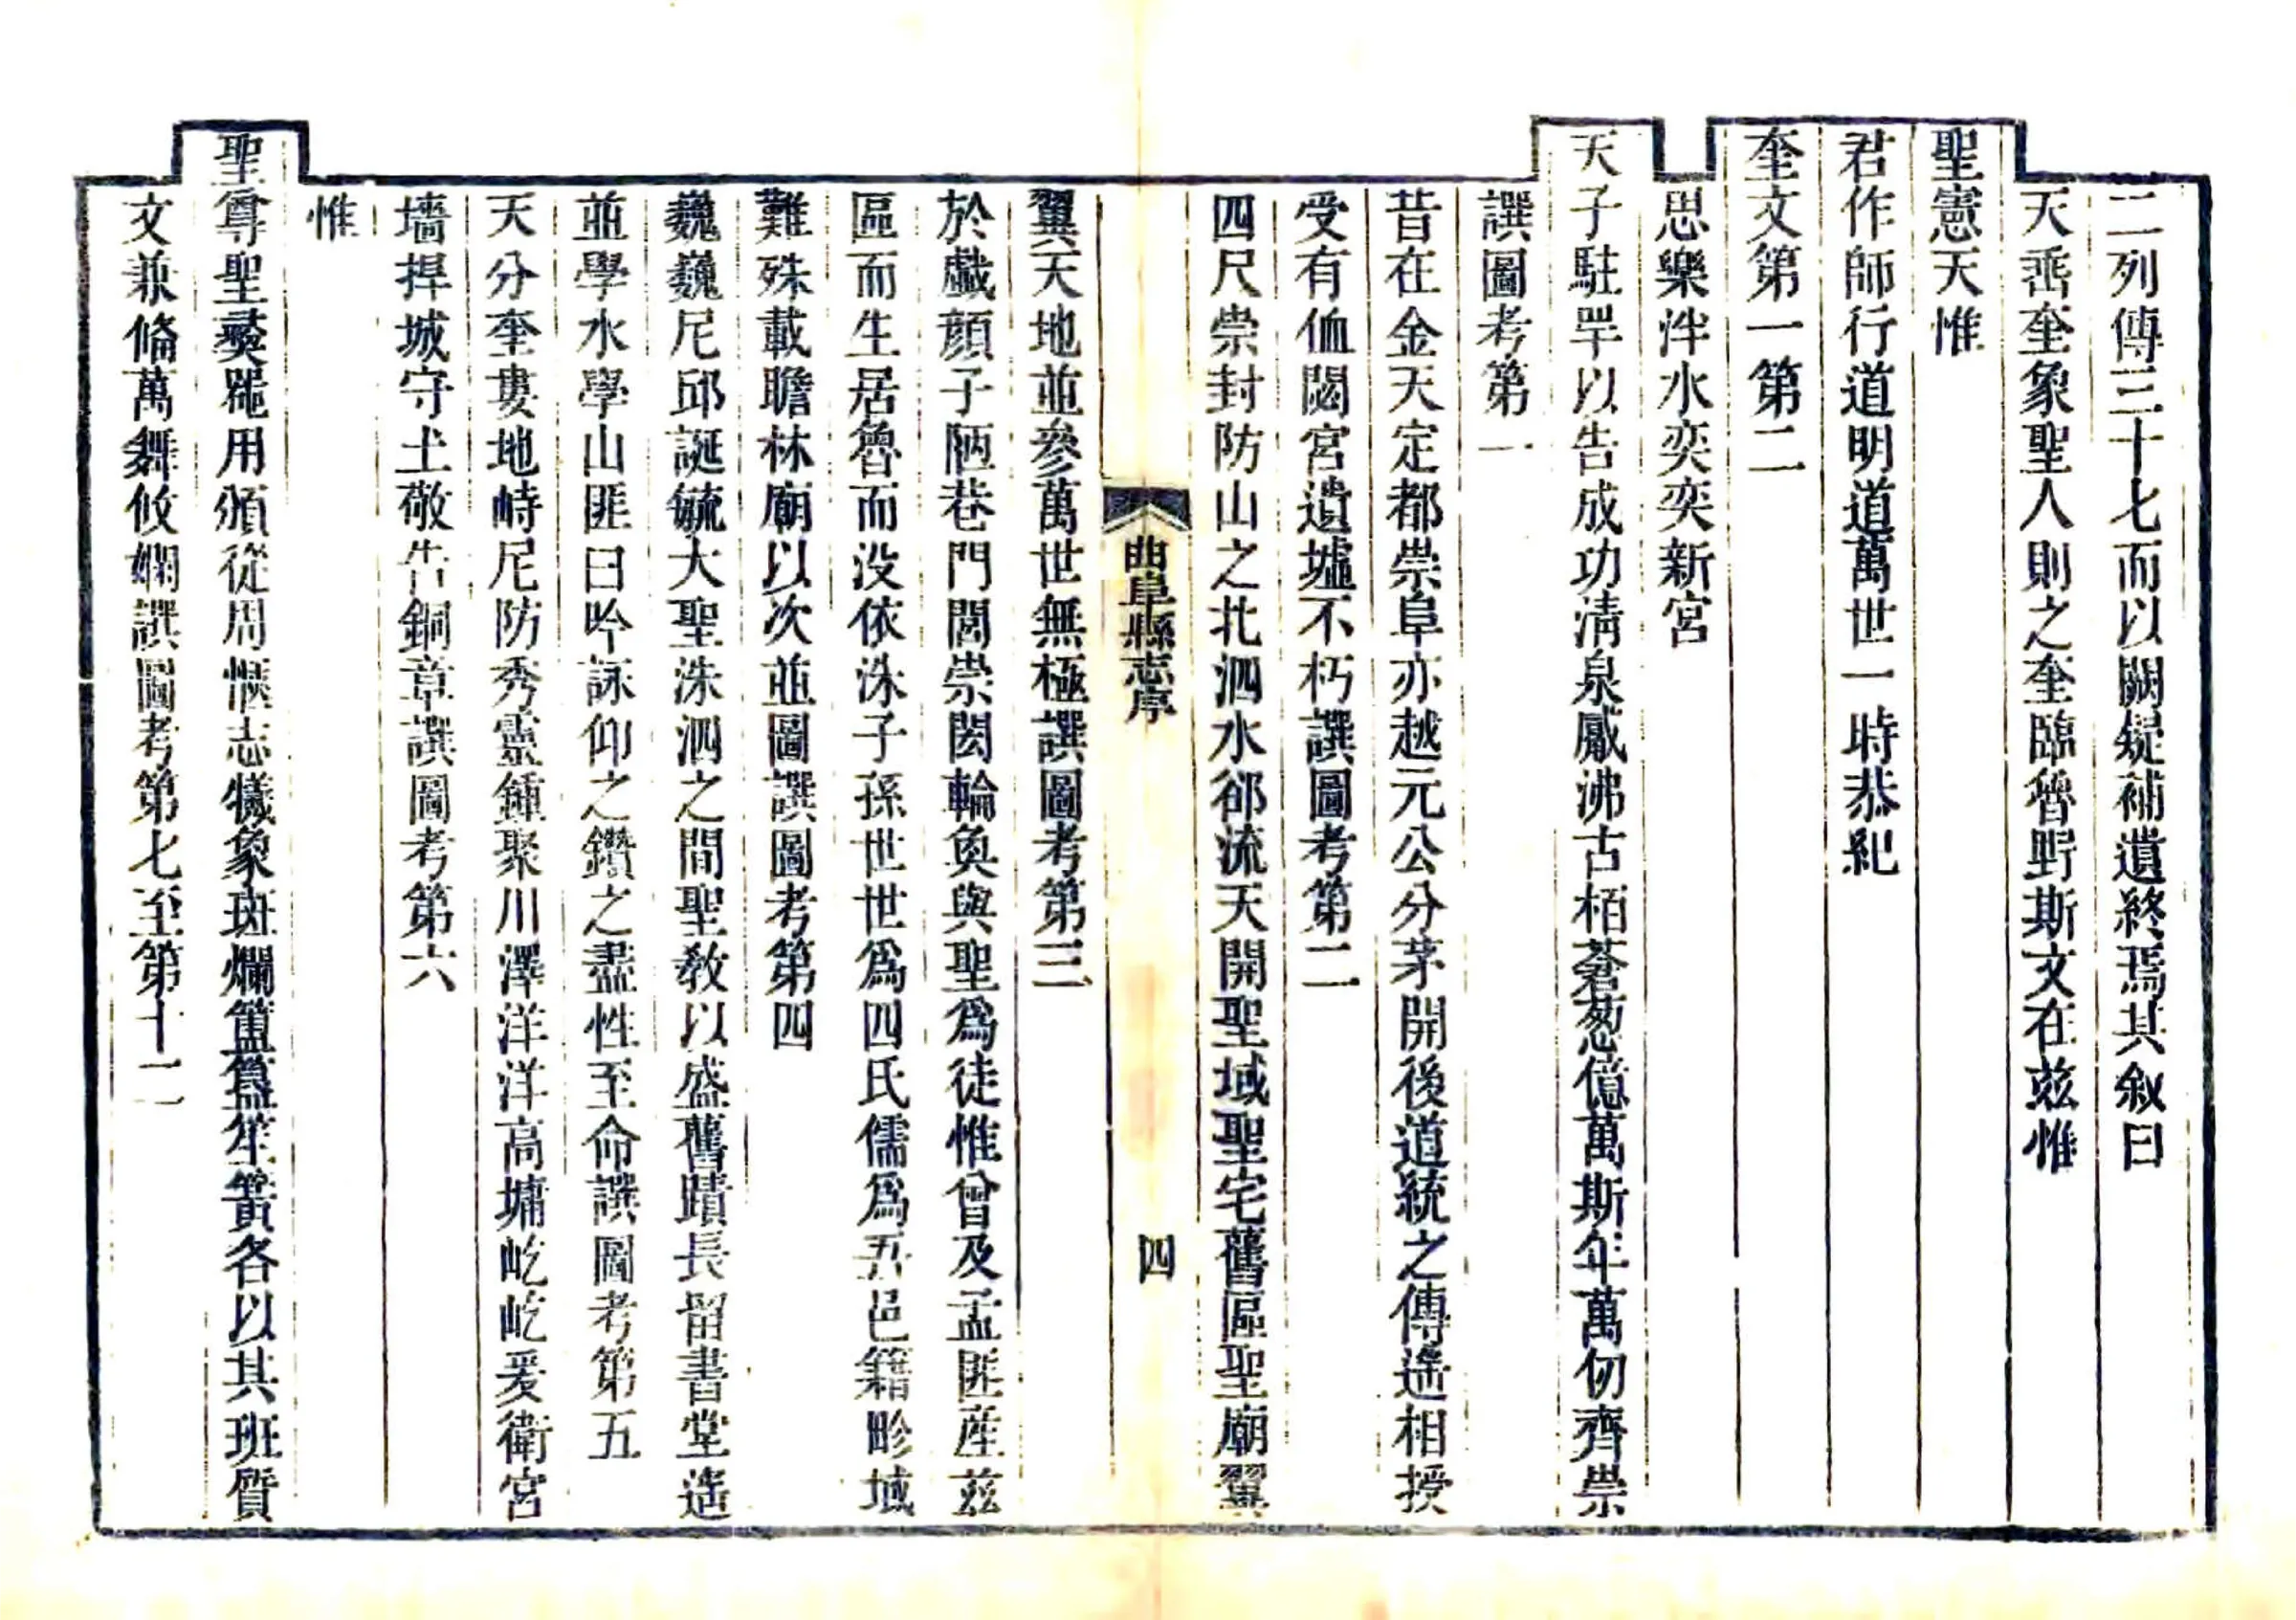 二列傳三十七而以闕疑補遺終焉其敘曰
天垂奎象聖人則之奎臨魯野斯文在兹惟
聖憲天惟
君作師行道明道萬世一時恭紀
奎文第一第二
思樂泮水奕奕新宮
天子駐罕以告成功清泉觱沸古栢蒼葱億萬斯年萬仞齊崇
譔圖考第一
昔在金天定都崇阜亦越元公分茅開後道統之傳遙相授
受有侐閟宮遺墟不朽譔圖考第二
四尺崇封防山之北泗水郤流天開聖域聖宅舊區聖廟翼
翼天地並參萬世無極譔圖考第三
曲阜縣志序
四
於戲顏子陋巷門閭崇閎輪奐與聖爲徒惟曾及孟匪産兹
區而生居魯而没依洙子孫世世爲四氏儒爲五邑籍畛域
難殊載瞻林廟以次並圖譔圖考第四
巍巍尼邱誕毓大聖洙泗之間聖敎以盛舊蹟長留書堂遙
並學水學山匪曰吟詠仰之鑽之盡性至命譔圖考第五
天分奎婁地峙尼防秀靈鍾聚川澤洋洋高墉屹屹爰衛宮
墻捍城守土敬告銅章譔圖考第六
惟
聖尊聖彞噐用頒從周愜志犧象斑爛簠簋笙簧各以其班質
文兼脩萬舞攸嫻譔圖考第七至第十二